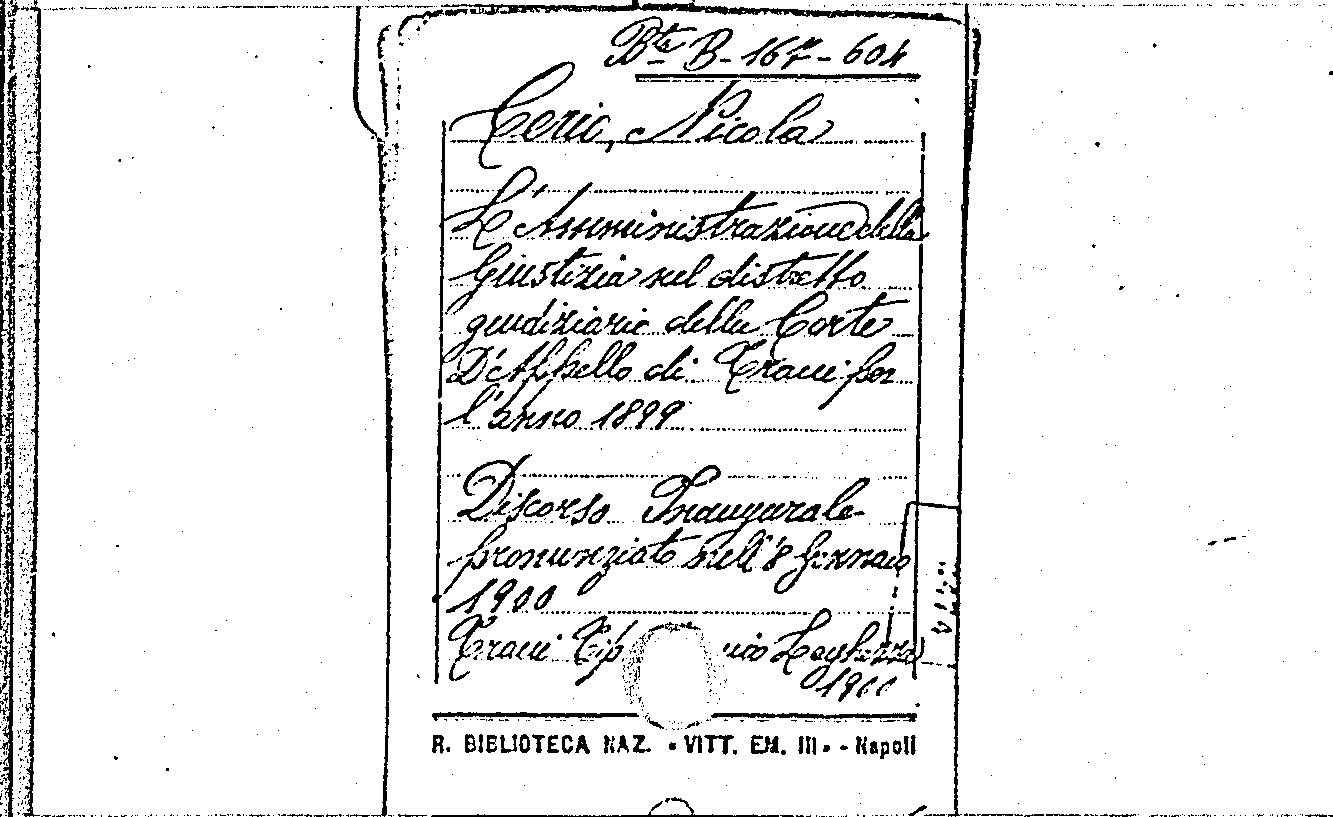 Bta B-167-604
Ceric, Nicola
L'Amministrazione della
Giustizia nel distretto
giudiziario della Corte
D'Appello di Trani per
l'anno 1899
Discorso Inaugurale
pronunziato nell'8 Gennaio
1900
Trani Tip
1900
R. BIBLIOTECA NAZ. • VITT. EM. III • - Napoli